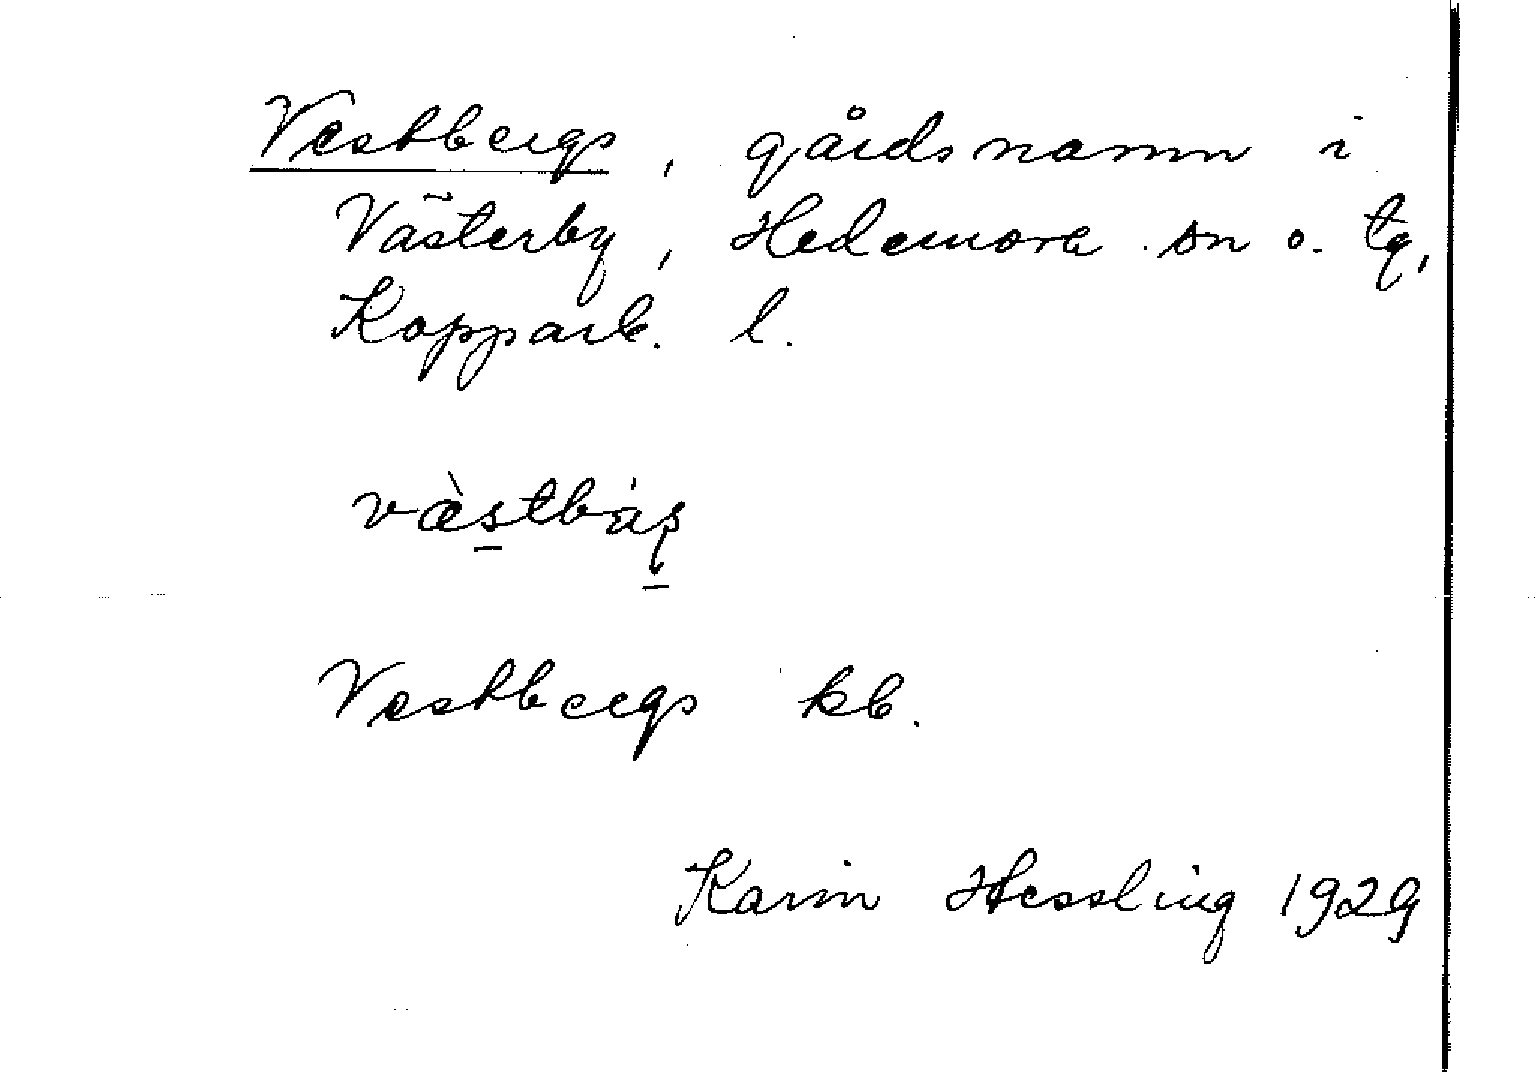 Vestbergs, gårdsnamn i
Västerby, Hedemora sn o. tg,
Kopparb. l.
Vestbergs kb.
Karin Hessling 1929